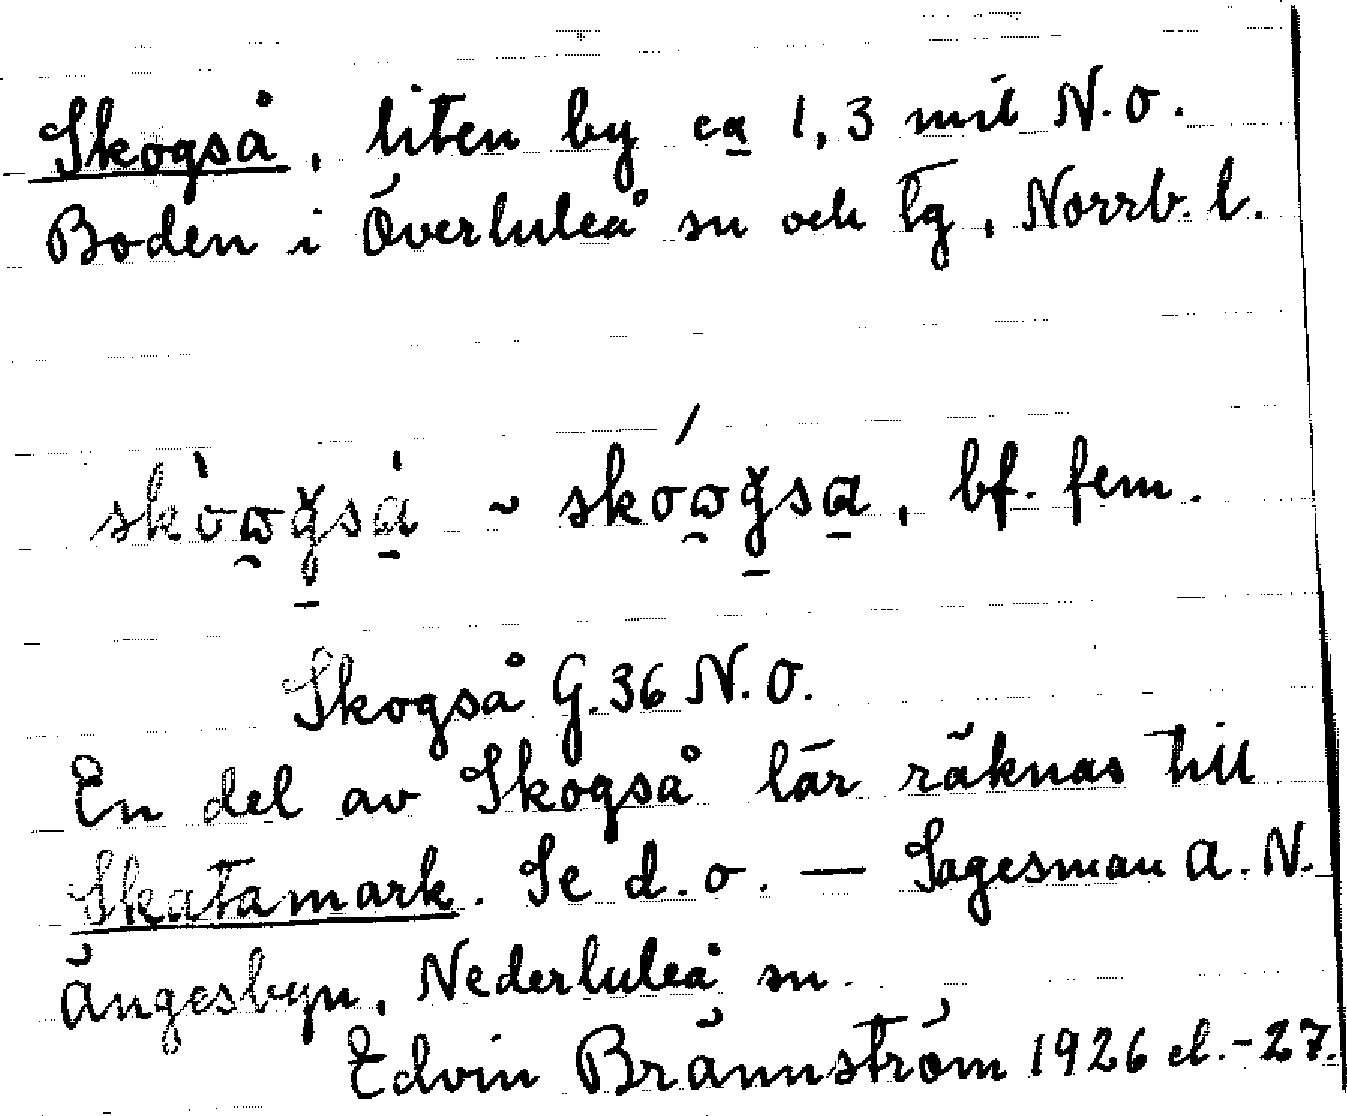 Skogså, liten by ca 1,3 mil N.O.
Boden i Överluleå sn och tg, Norrb. l.
bf. fem.
Skogså G.36 N.O.
En del av Skogså lär räknas till
Skatamark. Se d.o. — Sagesman A.N.
Ängesbyn, Nederluleå sn.
Edvin Brännström 1926 el.-27.